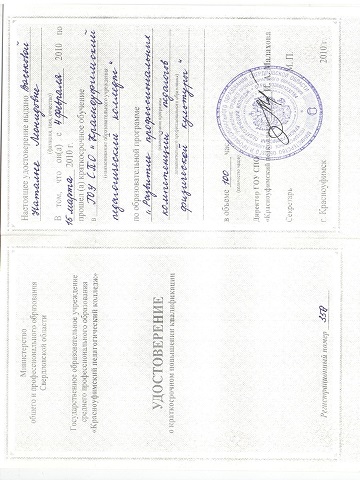 Министерство
общего и профессионального образования
Свердловской области
Государственное образовательное учреждение
среднего профессионального образования
«Красноуфимский педагогический колледж»
УДОСТОВЕРЕНИЕ
о краткосрочном повышении квалификации
Регистрационный номер 358
Настоящее удостоверение выдано
Наталье Леонидовне
(фамилия, имя, отчество)
В том, что он(а) с 4 февраля 2010 по
16 марта 2010 г.
прошел(а) краткосрочное обучение
в ГОУ СПО "Красноуфимский
педагогический колледж"
по образовательной программе
"Развитие профессиональных
компетенций педагогов
физической культуры"
в объеме 100 час
Директор ГОУ СПО
«Красноуфимский педаг И. А. Малахова
Секретарь М.П.
г. Красноуфимск 2010 г